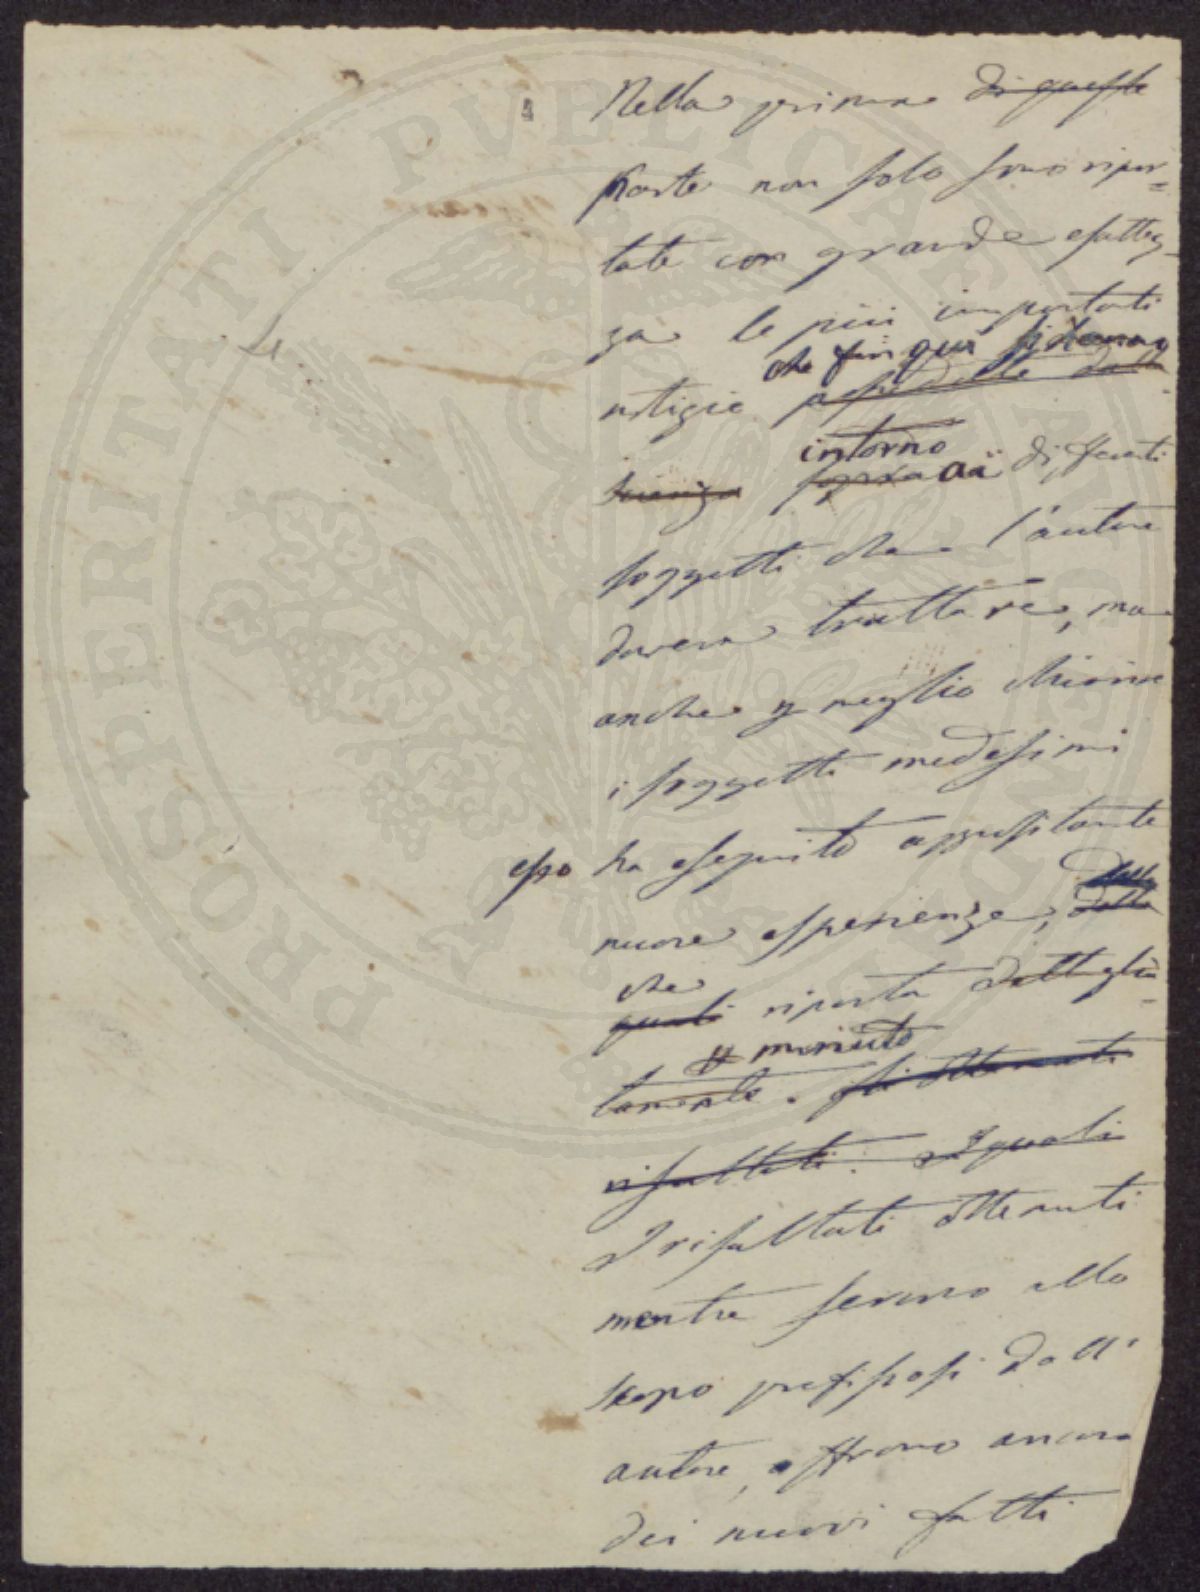 Nella prima di queste
Parte non solo sono ripor=
tate con grande esattez-
za le più importanti
che fin qui si hanno
notizie possedute dalla
intorno
scienza sopra ai differenti
soggetti che l'autore
doveva trattare, ma
anche p meglio chiarire
i soggetti medesimi
esso ha eseguito appositamente
nuove esperienze, delle
che
quali riporta dettaglia-
minuto
tamente. gli ottenuti
risultati. I quali
I risultati ottenuti
mentre servono allo
scopo prefissosi dall'
autore, offrono ancora
dei nuovi fatti
PROSPERITATI PUBLICAE AUGENDAE